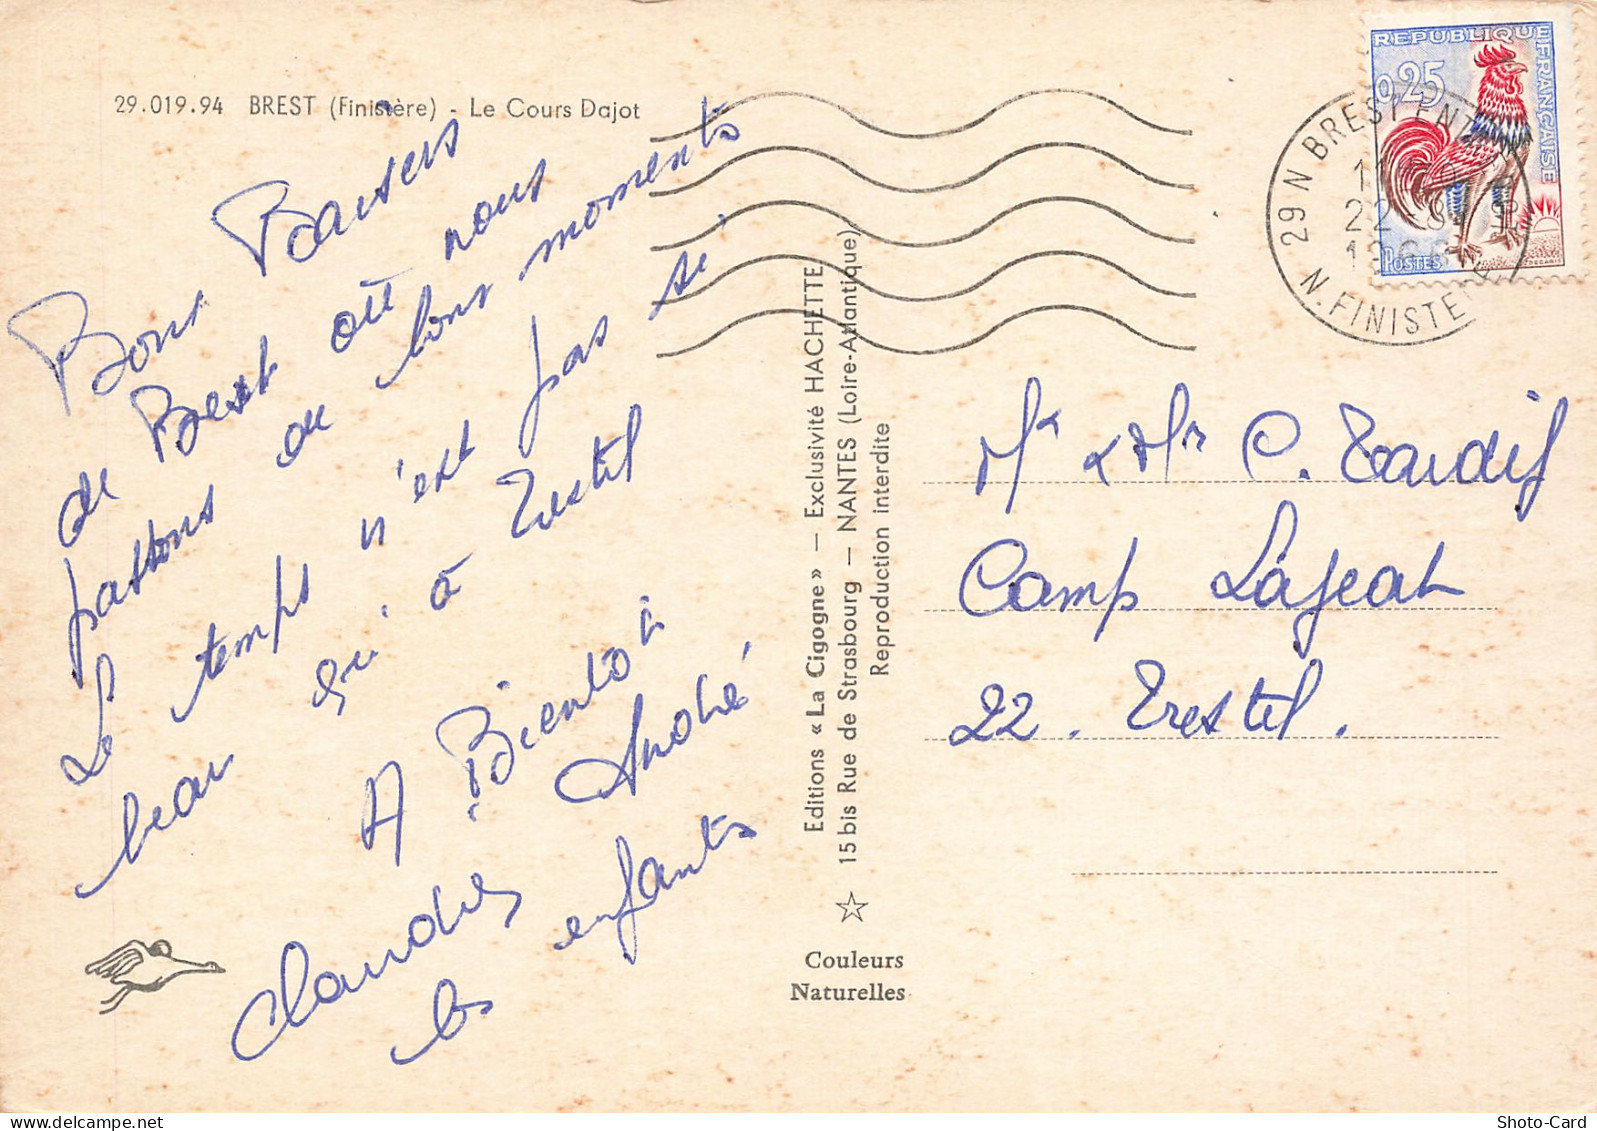 29.019.94 BREST (Finistère) - Le Cours Dajot
Bons Baisers
de Brest où nous
passons de bons moments
Le temps n'est pas si
beau qu'à Trestel
A Bientôt
André
Claudie,
les enfants
Editions « La Cigogne » — Exclusivité HACHETTE
15 bis Rue de Strasbourg — NANTES (Loire-Atlantique)
Reproduction interdite
Couleurs
Naturelles
REPUBLIQUE FRANÇAISE
0,25
POSTES
29 N BREST
22 - 8
N. FINISTE
Mr & Mme C. Tardif
Camp Lajeat
22. Trestel.
Shoto-Card